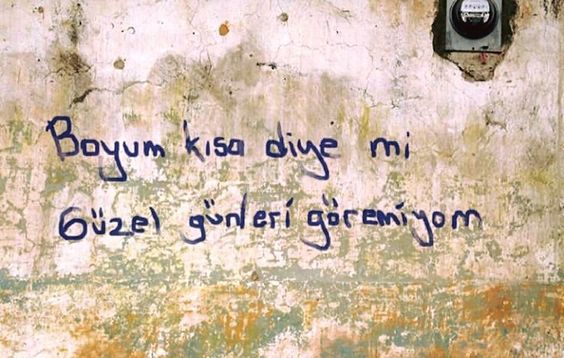 Boyum kısa diye mi
Güzel günleri göremiyom